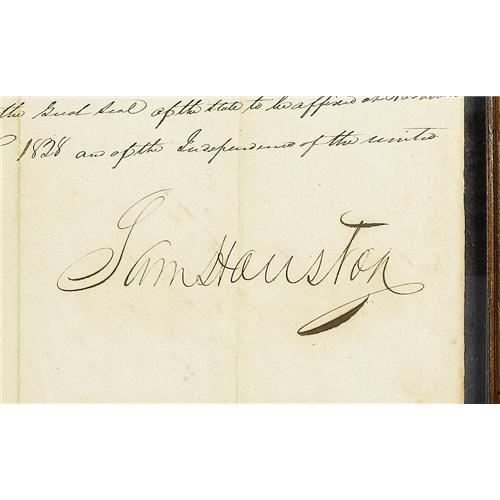 the Great Seal of the state to be affixed at
1828 and of the Independence of the united
Sam Houston